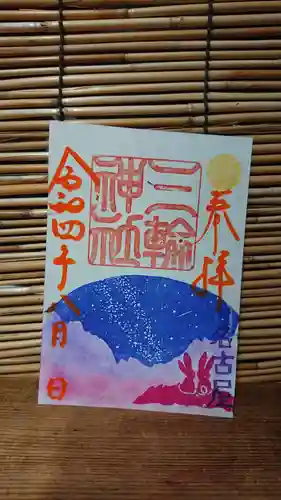 奉拝
三輪
神社
名古屋
令和四年八月 日